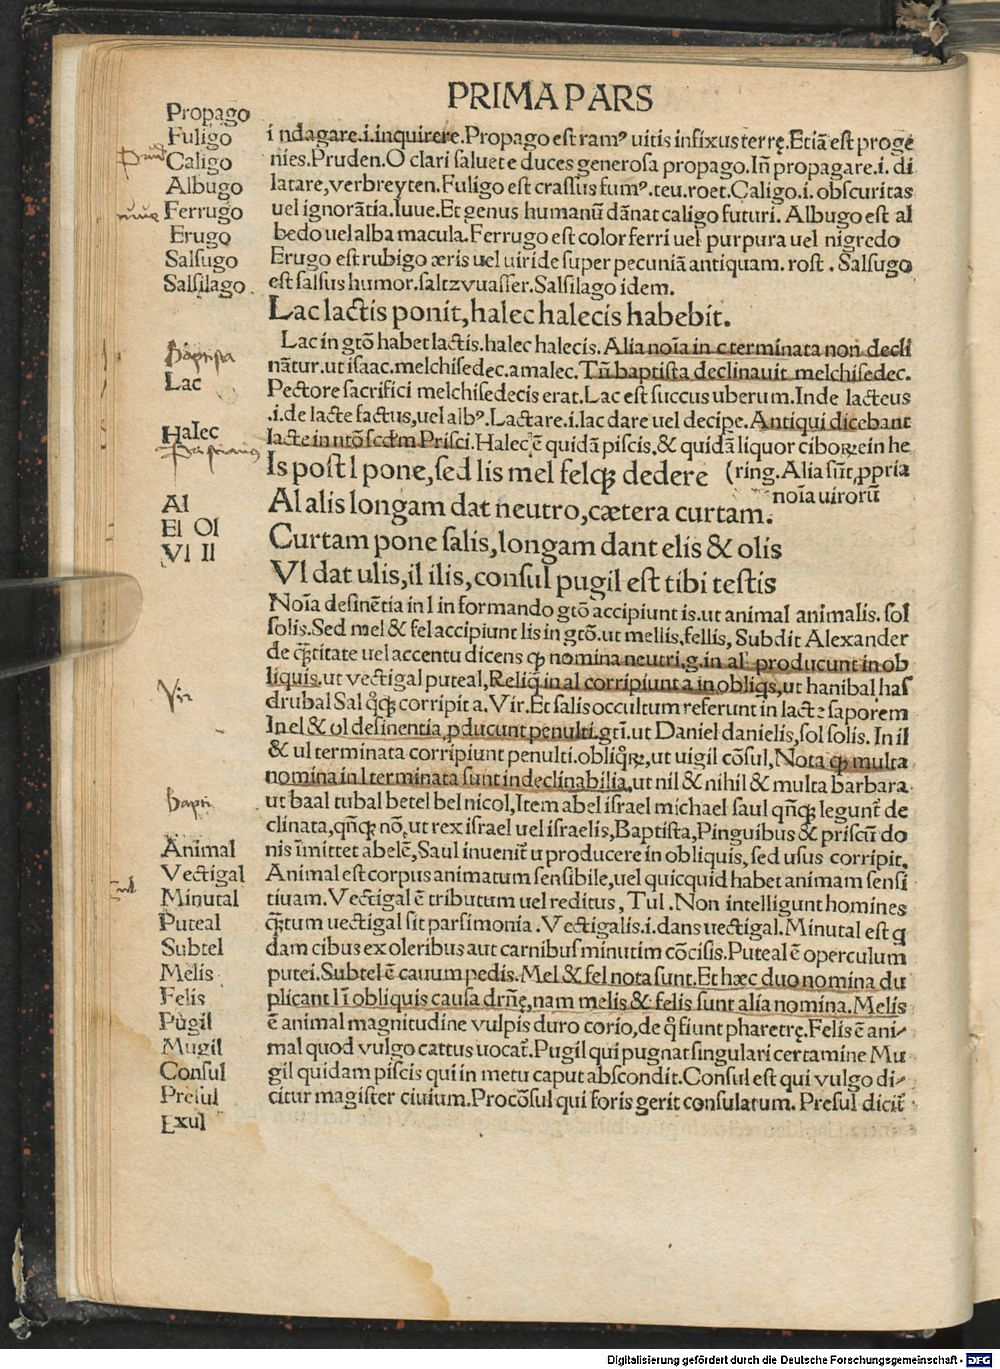 PRIMA PARS
Propago
Fuligo
Caligo
Albugo
Ferrugo
Erugo
Salsugo
Salsilago
i ndagare.i.inquirere.Propago est ramꝰ uitis infixus terrę.Etiā est proge
nies.Pruden.O clari saluete duces generosa propago.Iñ propagare.i. di
latare,verbreyten.Fuligo est crassus fumꝰ.teu.roet.Caligo.i. obscuritas
uel ignorātia.Iuue.Et genus humanū dānat caligo futuri. Albugo est al
bedo uel alba macula.Ferrugo est color ferri uel purpura uel nigredo
Erugo est rubigo æris uel uiride super pecuniā antiquam. rost . Salsugo
est salsus humor.saltzvuasser.Salsilago idem.
Lac lactis ponit, halec halecis habebit.
Baptista
Lac
Halec
Lac in gtō habet lactis.halec halecis. Alia noīa in c terminata non decli
nātur.ut isaac.melchisedec.amalec.Tñ baptista declinauit melchisedec.
Pectore sacrifici melchisedecis erat. Lac est succus uberum. Inde lacteus
.i.de lacte factus,uel albꝰ.Lactare.i.lac dare uel decipe.Antiqui dicebant
lacte in ntō scdm Prisci.Halec ē quidā piscis,& quidā liquor ciboꝝ ein he
(ring. Alia sūt ꝓpria
noīa uirorū
Is post l pone, sed lis mel felqꝫ dedere
Al
El Ol
Vl Il
Al alis longam dat neutro, cætera curtam.
Curtam pone salis, longam dant elis & olis
Vl dat ulis, il ilis, consul pugil est tibi testis
Noīa desinētia in l in formando gtō accipiunt is.ut animal animalis. sol
solis.Sed mel & fel accipiunt lis in gtō.ut mellis,fellis, Subdit Alexander
de q̄titate uel accentu dicens ꝙ nomina neutri.g.in al producunt in ob
liquis.ut vectigal puteal,Reliq̄ in al corripiunt a in obliqs,ut hanibal has
drubal Sal q̊qꝫ corripit a. Vir.Et salis occultum referunt in lacte saporem
In el & ol desinentia, ꝓducunt penulti.gtī.ut Daniel danielis,sol solis. In il
& ul terminata corripiunt penulti.obliq̊ꝝ,ut uigil cōsul,Nota ꝙ multa
nomina in l terminata sunt indeclinabilia,ut nil & nihil & multa barbara
ut baal tubal betel bel nicol,Item abel israel michael saul qñqꝫ legunt̄ de
clinata,qñqꝫ nō,ut rex israel uel israelis,Baptista,Pinguibus & priscū do
nis īmittet abelē,Saul inuenit̄ u producere in obliquis,sed usus corripit.
Vir
Animal
Vectigal
Minutal
Puteal
Subtel
Melis
Felis
Pugil
Mugil
Consul
Presul
Exul
Animal est corpus animatum sensibile,uel quicquid habet animam sensi
tiuam. Vectigal ē tributum uel reditus , Tul . Non intelligunt homines
q̄tum uectigal sit parsimonia . Vectigalis.i.dans uectigal. Minutal est q
dam cibus ex oleribus aut carnibus minutim cōcisis. Puteal ē operculum
putei. Subtel ē cauum pedis. Mel & fel nota sunt. Et hæc duo nomina du
plicant l ī obliquis causa drñę,nam melis & felis sunt alia nomina. Melis
ē animal magnitudine vulpis duro corio,de q̊ fiunt pharetrę.Felis ē ani-
mal quod vulgo cattus uocat̄.Pugil qui pugnat singulari certamine Mu
gil quidam piscis qui in metu caput abscondit.Consul est qui vulgo di-
citur magister ciuium.Procōsul qui foris gerit consulatum. Presul dicit̄
Digitalisierung gefördert durch die Deutsche Forschungsgemeinschaft - DFG